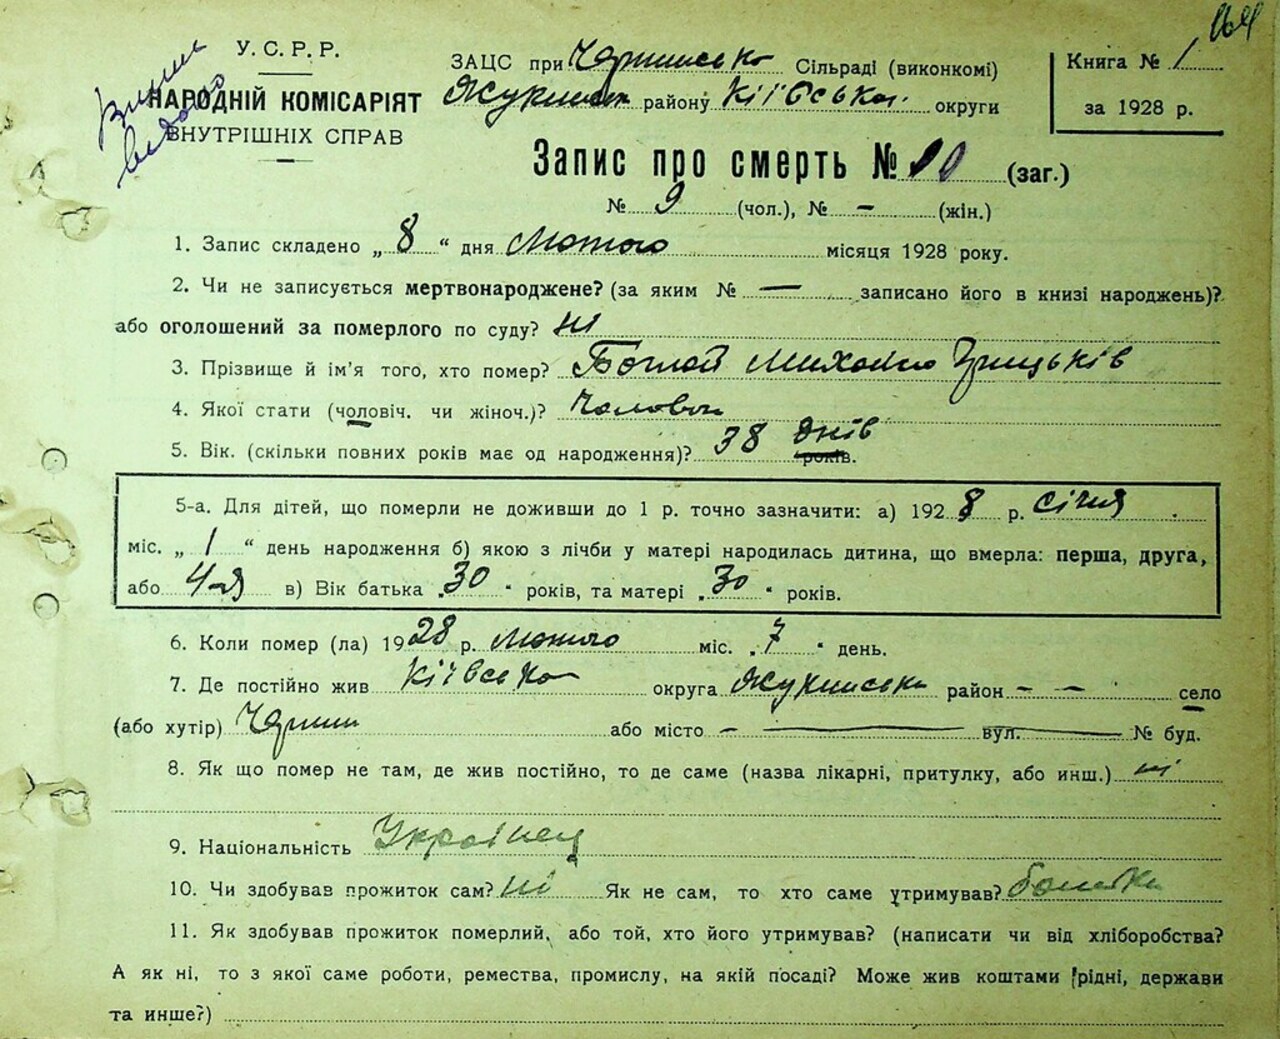 164
У. С. Р. Р.
НАРОДНІЙ КОМІСАРІЯТ
ВНУТРІШНІХ СПРАВ
ЗАЦС при Сільраді (виконкомі)
району Київська округи
Книга № 1
за 1928 р.
Запис про смерть № 10 (заг.)
№ 9 (чол.), № — (жін.)
1. Запис складено „ 8 “ дня Лютого місяця 1928 року.
2. Чи не записується мертвонароджене? (за яким № — записано його в книзі народжень)?
або оголошений за померлого по суду? ні
3. Прізвище й ім'я того, хто помер? Михайло Грицьків
4. Якої стати (чоловіч. чи жіноч.)?
5. Вік. (скільки повних років має од народження)? 38 днів років.
5-а. Для дітей, що померли не доживши до 1 р. точно зазначити: а) 192 8 р. січня
міс. „ 1 “ день народження б) якою з лічби у матері народилась дитина, що вмерла: перша, друга,
або 4-я в) Вік батька „ 30 “ років, та матері „ 30 “ років.
6. Коли помер (ла) 19 28 р. Лютого міс. „ 7 “ день.
7. Де постійно жив Київська округа район — — село
(або хутір) або місто — вул. № буд.
8. Як що помер не там, де жив постійно, то де саме (назва лікарні, притулку, або инш.) ні
9. Національність Українец
10. Чи здобував прожиток сам? ні Як не сам, то хто саме утримував? батьки
11. Як здобував прожиток померлий, або той, хто його утримував? (написати чи від хліборобства?
А як ні, то з якої саме роботи, ремества, промислу, на якій посаді? Може жив коштами рідні, держави
та инше?)